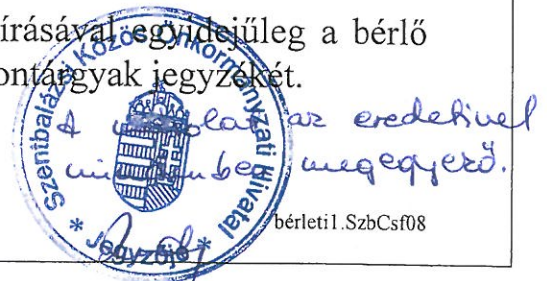 írásával egyidejűleg a bérlő
ontárgyak jegyzékét.
A másolat az eredetivel
mindenben megegyező.
Szentbalázsi Közös Önkormányzati Hivatal
* Jegyzője *
bérleti1.SzbCsf08